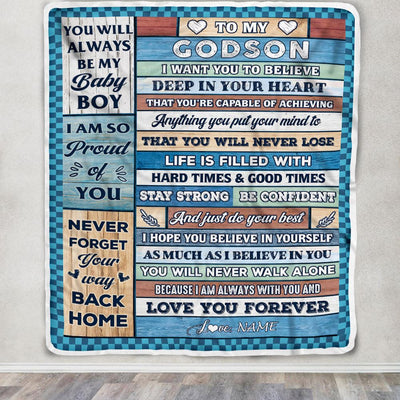 YOU WILL
ALWAYS
BE MY
Baby
BOY
I AM SO
Proud
of
YOU
NEVER
FORGET
Your
way
BACK
HOME
TO MY
GODSON
I WANT YOU TO BELIEVE
DEEP IN YOUR HEART
THAT YOU'RE CAPABLE OF ACHIEVING
Anything you put your mind to
THAT YOU WILL NEVER LOSE
LIFE IS FILLED WITH
HARD TIMES & GOOD TIMES
STAY STRONG BE CONFIDENT
And just do your best
I HOPE YOU BELIEVE IN YOURSELF
AS MUCH AS I BELIEVE IN YOU
YOU WILL NEVER WALK ALONE
BECAUSE I AM ALWAYS WITH YOU AND
LOVE YOU FOREVER
Love, NAME